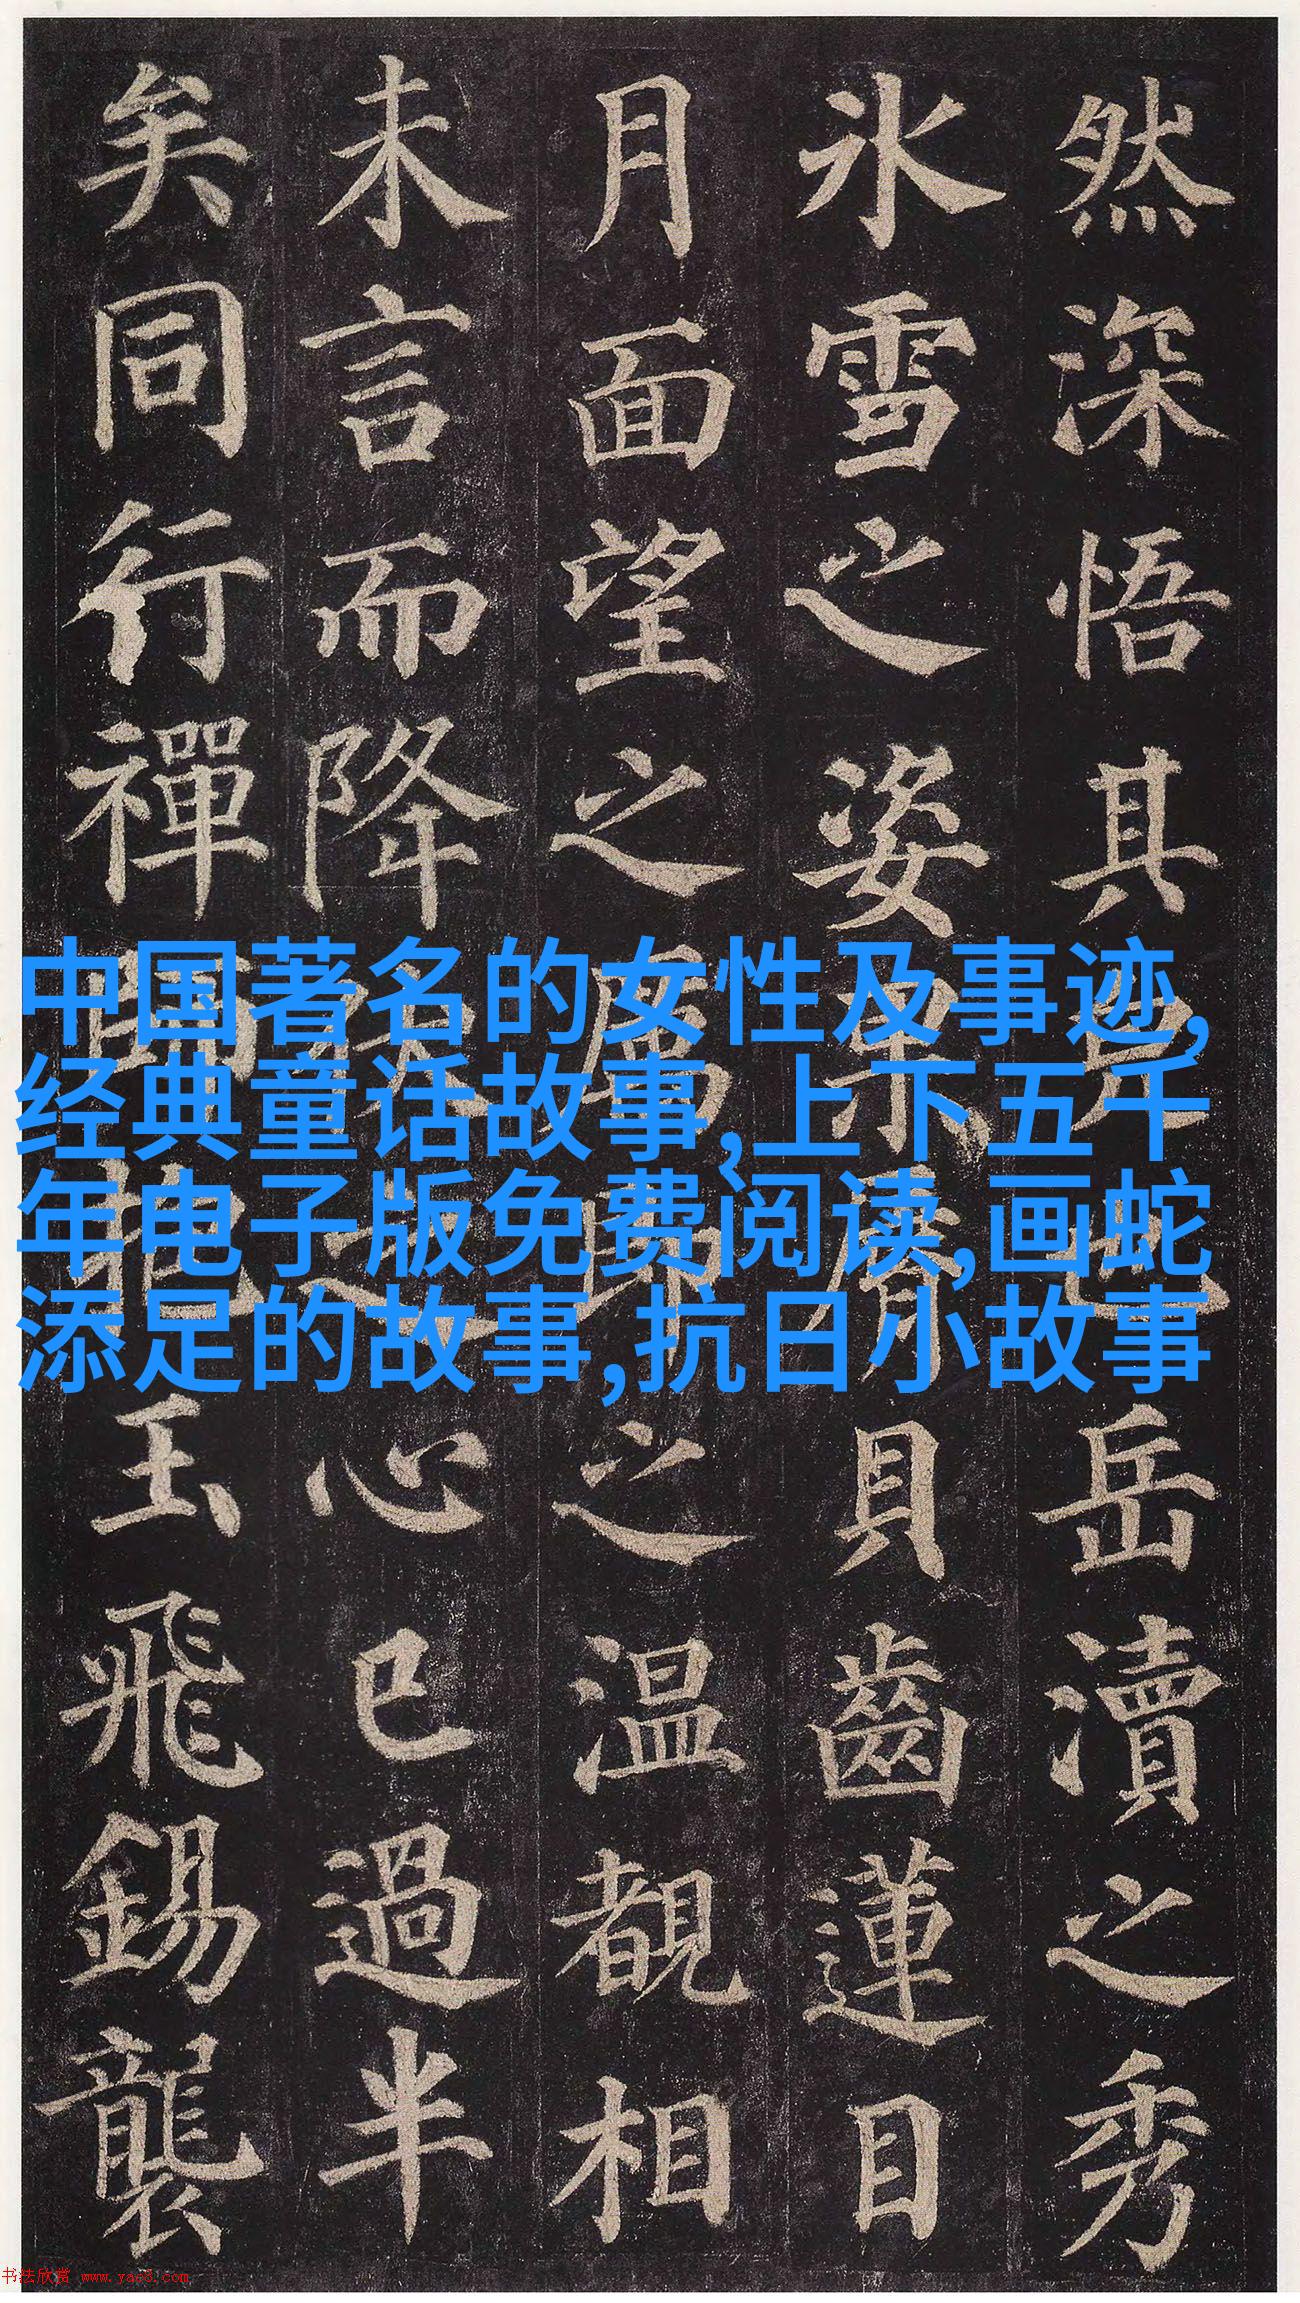 然深悟其也岳瀆之秀
氷雪之姿果脣貝齒蓮目
月面望之厲即之温覩相
未言而降伏之心已過半
矣同行禪師抱玉飛錫襲
中国著名的女性及事迹,
经典童话故事,上下五千
年电子版免费阅读,画蛇
添足的故事,抗日小故事
书法欣赏 www.yac8.com